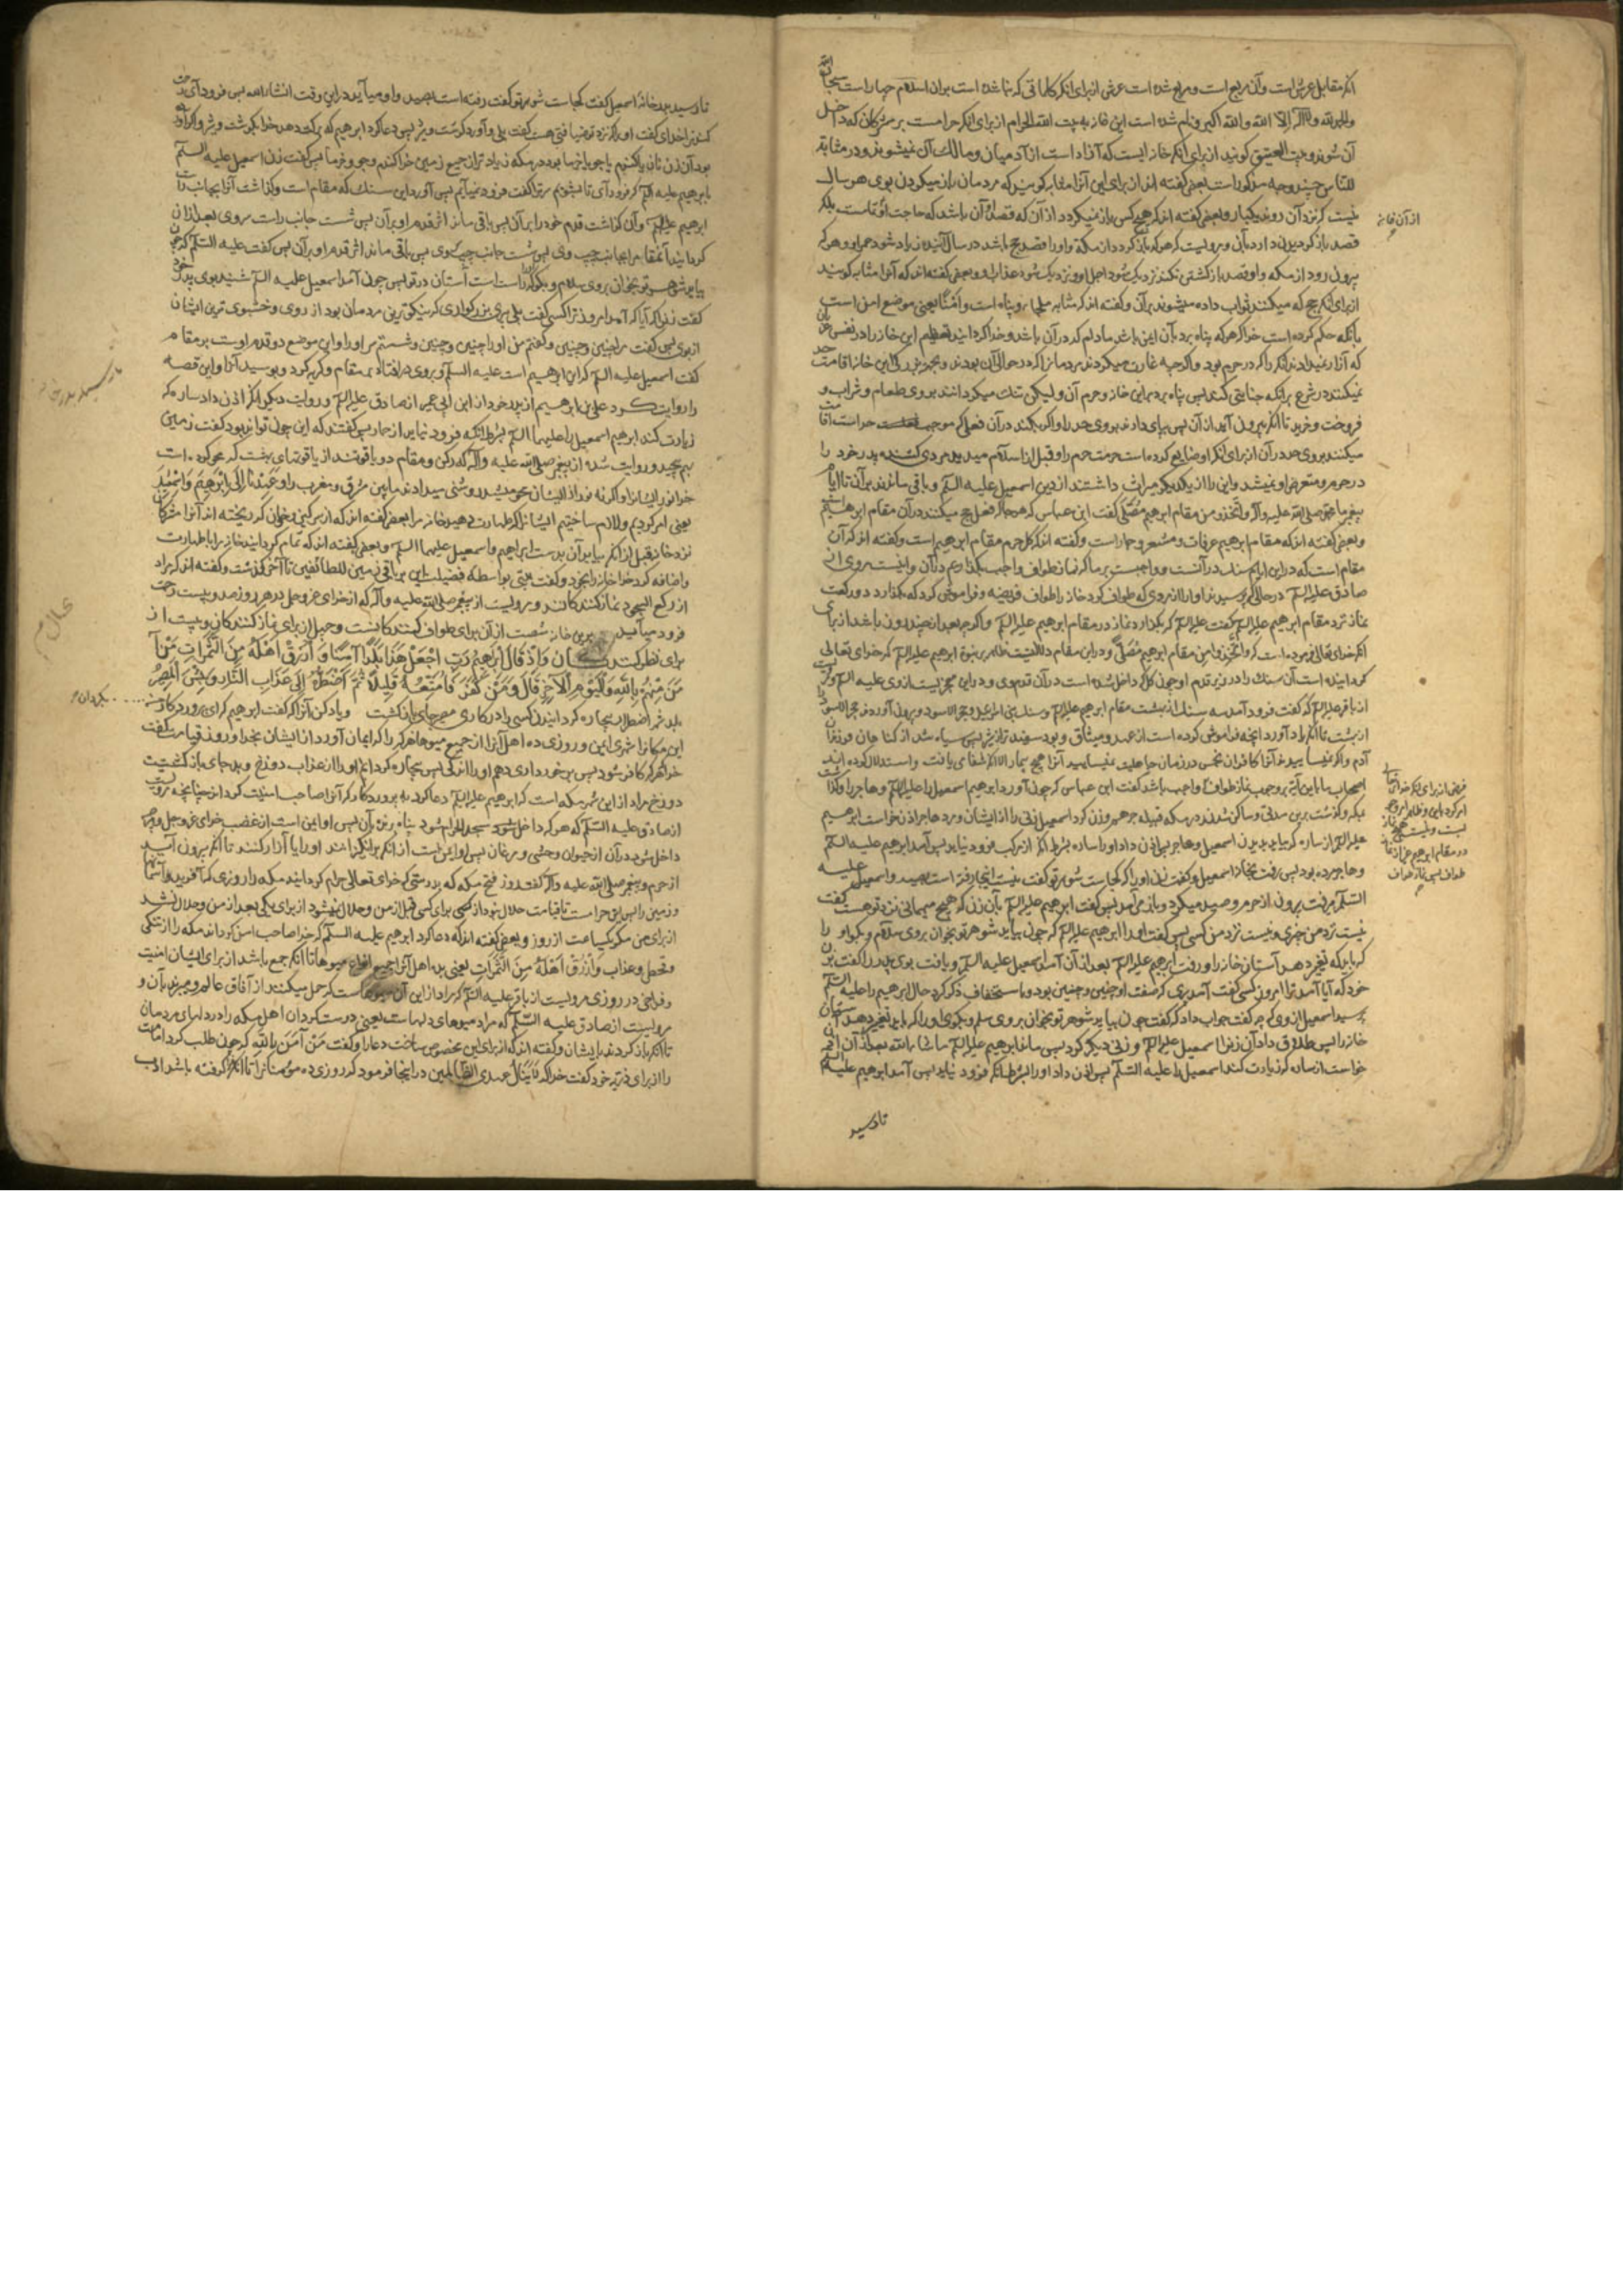 انکه مقابل عرش است وآن مربع است و مربع شده است عرش از برای انکه کلماتی که بنا شده است بران اسلام چهار است سبحان الله
والحمد لله ولا اله الا الله والله اکبر و نام شده است این خانه به بیت الله الحرام از برای انکه حرامست بر مشرکان که داخل
آن شوند و بیت العتیق کویند از برای آنکه خانه ایست که آزاد است از آدمیان و مالک آن نمیشوند و در مثابة
للناس چند وجه مذکور است بعضی گفته اند از برای این آنرا مثابه کویند که مردمان باز میکردند بوی هر سال
نیست که نزد آن روند یکبار و بعضی گفته اند که هیچ کس باز نمیکردد از آن که قصد آن باشد که حاجت او تمامست بلکه
قصد باز کردیدن دارد بآن و مرویست که هر که باز کردد از مکه و او را قصد حج باشد در سال آینده زیاد شود عمر او و هر که
بیرون رود از مکه و او قصد بازکشتن نکند نزدیک شود اجل او و نزدیک شود عذاب او و بعضی گفته اند که آنرا مثابه کویند
از برای انکه حج که میکنند ثواب داده میشوند بر آن و گفته اند که مثابه ملجا و پناه است وامنا یعنی موضع امن است
بآنکه حکم کرده است خدا که هر که پناه برد بآن ایمن باشد مادام که در آن باشد و خدا کردانید تعظیم این خانه را در نفس
که آزار نمیدادند انکه را که در حرم بود واگرچه غارت میکردند مردمانرا که در حوالی آن بودند
نمیکنند در شرع بر انکه جنایتی کند پس پناه برد باین خانه و حرم آن ولیکن تنک میکردانند بروی طعام و شراب و
فروخت و خرید تا انکه بیرون آید از آن پس برپای دارند بروی حد را و اگر بکند در آن فعلی که موجب حد است اقامت
میکنند بروی حد در آن از برای انکه او ضایع کرده است حرمت حرم را و قبل از اسلام میدید مردی کشنده پدر خود را
در حرم و متعرض او نمیشد و این را از یکدیکر میراث داشتند از دین اسمعیل علیه السلم و باقی ماندند بر آن تا ایام
پیغمبر ما محمد صلی الله علیه واله واتخذوا من مقام ابرهیم مصلی گفت ابن عباس که هر جا که فعل حج میکنند در آن مقام ابرهیم است
و بعضی گفته اند که مقام ابرهیم عرفات و مشعر و جمار است و گفته اند که کل حرم مقام ابرهیم است و گفته اند که آن
مقام است که در این ایام سنک در آنست و واجبست بر ما که نماز طواف واجب بکذاریم در آن
صادق علیه السلم در حالی که پرسیدند او را از مردی که طواف کرد خانه را طواف فریضه و فراموش کرد که بکذارد دو رکعت
نماز نزد مقام ابرهیم علیه السلم گفت علیه السلم که بکذارد نماز در مقام ابرهیم علیه السلم واگرچه بعد از چند روز باشد از برای
انکه خدای تعالی فرموده است که واتخذوا من مقام ابرهیم مصلی و در این مقام دلالتیست ظاهر بر نبوة ابرهیم علیه السلم که خدای تعالی
کردانیده است آن سنک را در زیر قدم او چون کل که داخل شده است در آن قدم وی و در این معجزیست از وی علیه السلم و مرویست
از باقر علیه السلم که گفت فرود آمد سه سنک از بهشت مقام ابرهیم علیه السلم و سنک بنی اسرائیل و حجر الاسود
از بهشت تا انکه یاد آورد انچه فراموش کرده است از عهد و میثاق و بود سفیدتر از شیر پس سیاه شد از کناهان فرزندان
آدم و اگر نمیساییدند آنرا کافران نجس در زمان جاهلیت نمیسایید آنرا هیچ بیمار الا انکه شفا می یافت و استدلال کرده اند
اصحاب ما باین آیه بر وجوب نماز طواف گفت ابن عباس که چون آورد ابرهیم اسمعیل را علیه السلم و هاجر را و کذاشت
بمکه و کذشت برین مدتی و ساکن شدند در مکه قبیله جرهم و زن کرد اسمعیل زنی را از ایشان و مرد هاجر اذن خواست ابرهیم
علیه السلم از ساره که بیاید بدیدن اسمعیل و هاجر پس اذن داد او را ساره بشرط انکه از مرکب فرود نیاید پس آمد ابرهیم علیه السلم
و هاجر مرده بود پس رفت بخانه اسمعیل و گفت زن او را که کجاست شوهر تو گفت نیست اینجا رفته است بصید و اسمعیل علیه
السلم میرفت بیرون از حرم و صید میکرد و باز می آمد پس گفت ابرهیم علیه السلم بآن زن که هیچ مهمانی نزد تو هست گفت
نیست نزد من چیزی و نیست نزد من کسی پس گفت او را ابرهیم علیه السلم که چون بیاید شوهر تو بخوان بروی سلام و بکو او را
که باید که تغیر دهد آستان خانه را و رفت ابرهیم علیه السلم بعد از آن آمد اسمعیل علیه السلم و یافت بوی پدر را گفت بزن
خود که آیا آمد ترا امروز کسی گفت آمد پیری که صفت او چنین و چنین بود و باستخفاف ذکر کرد حال ابرهیم را علیه السلم
پرسید اسمعیل از وی که چه گفت جواب داد که گفت چون بیاید شوهر تو بخوان بروی سلم و بکوی او را که باید تغیر دهد آستان
خانه را پس طلاق داد آن زن را اسمعیل علیه السلم و زنی دیکر کرد پس ماند ابرهیم علیه السلم ماشاء الله بعد از آن اذن
خواست از ساره که زیارت کند اسمعیل را علیه السلم پس اذن داد او را بشرط انکه فرود نیاید پس آمد ابرهیم علیه السلم
تا رسید
از آن خانه
تا رسید بدر خانه اسمعیل گفت کجاست شوهر تو گفت رفته است بصید و او میآید در این وقت انشاء الله پس فرود آی رحمت
کند ترا خدای گفت او را که نزد تو ضیافتی هست گفت بلی و آورد کوشت و شیر پس دعا کرد ابرهیم که برکت دهد خدا بکوشت و شیر و اگر آورده
بود آن زن نان یا کندم یا جو یا خرما بود در مکه زیادتر از جمیع زمین خدا کندم و جو و خرما پس گفت زن اسمعیل علیه السلم
بابرهیم علیه السلم که فرود آی تا بشویم سر ترا گفت فرود نمیآیم پس آورد این سنک که مقام است و کذاشت آنرا بجانب راست
ابرهیم علیه السلم و آن کذاشت قدم خود را بر آن پس باقی ماند اثر قدم او بر آن پس شست جانب راست سر وی بعد از آن
کردانید آنمقام را بجانب چپ وی پس شست جانب چپ وی پس باقی ماند اثر قدم او بر آن پس گفت علیه السلم که چون
بیاید شوهر تو بخوان بروی سلام و بکو که راست است آستان در تو پس چون آمد اسمعیل علیه السلم شنید بوی پدر خود
گفت زنی را که آیا آمد امروز ترا کسی گفت بلی پیری بزرکواری که نیکوترین مردمان بود از روی و خشبوی ترین ایشان
از بوی پس گفت مرا چنین و چنین و گفتم من او را چنین و چنین و شستم سر او را و این موضع دو قدم اوست بر مقام
گفت اسمعیل علیه السلم که این ابرهیم است علیه السلم و بروی در افتاد بر مقام و کریه کرد و بوسید آنرا و این قصه
را روایت کرد علی بن ابرهیم از پدر خود از ابن ابی عمیر از صادق علیه السلم و روایت دیکر انکه اذن داد ساره که
زیارت کند ابرهیم اسمعیل را علیهما السلم بشرط انکه فرود نیاید از حمار پس گفتند که این چون تواند بود گفت زمین
بهم پیچید و روایت شده از پیغمبر صلی الله علیه واله که رکن و مقام دو یاقوتند از یاقوتهای بهشت که محو کرده است
خدا نور ایشانرا و اگر نه نور از ایشان محو میشد روشنی میدادند مابین مشرق و مغرب را وعهدنا الی ابرهیم واسمعیل
یعنی امر کردیم و لازم ساختیم ایشانرا که طهارت دهید خانه مرا بعضی گفته اند که از سرکین و خون که ریخته اند آنرا مشرکان
نزد خانه قبل از انکه بنا بر آن بدست ابراهیم و اسمعیل علیهما السلم و بعضی گفته اند که تمام کردانید خانه مرا با طهارت
و اضافه کرد خدا خانه را بخود و گفت بیتی بواسطه فضیلت این بر باقی زمین للطائفین تا آخر کذشت و گفته اند که مراد
از رکع السجود نماز کنندکانند و مرویست از پیغمبر صلی الله علیه واله که از خدای عز وجل در هر روز صد و بیست رحمت
فرود میآید برین خانه شصت از آن برای طواف کنندکانست و چهل از برای نماز کنندکان و بیست از
برای نظر کنندکان وَإِذْ قَالَ إِبْرَهِيمُ رَبِّ اجْعَلْ هَذَا بَلَدًا آمِنًا وَارْزُقْ أَهْلَهُ مِنَ الثَّمَرَاتِ مَنْ آ
مَنَ مِنْهُمْ بِاللَّهِ وَالْيَوْمِ الْآخِرِ قَالَ وَمَنْ كَفَرَ فَأُمَتِّعُهُ قَلِيلًا ثُمَّ أَضْطَرُّهُ إِلَى عَذَابِ النَّارِ وَبِئْسَ الْمَصِيرُ
بلد شهر اضطرار بیچاره کردانیدن کسی را در کاری مصیر جای بازکشت و یاد کن آنرا که گفت ابرهیم که ای پروردکار من
این مکانرا شهری ایمن و روزی ده اهل آنرا از جمیع میوها هر که را که ایمان آورد از ایشان بخدا و روز قیامت گفت
خدا هر که کافر شود پس برخورداری دهم او را اندکی پس بیچاره کردانم او را از عذاب دوزخ و بد جای بازکشتیست
دوزخ مراد از این شهر مکه است که ابرهیم علیه السلم دعا کرد به پروردکار که آنرا صاحب امنیت کرداند چنانچه مرویست
از صادق علیه السلم که هر که داخل شود بیت الحرام شود پناه برنده بآن پس او ایمن است از غضب خدای عز وجل و هر چه
داخل شود در آن از حیوان وحشی و مرغان پس او ایمن است از انکه برانکیزانند او را یا آزار کنند تا انکه بیرون آید
از حرم و پیغمبر صلی الله علیه واله گفت روز فتح مکه که بدرستی که خدای تعالی حرام کردانید مکه را روزی که آفرید آسمانها
و زمین را پس این حرامست تا قیامت حلال نبود از کسی برای کسی قبل از من و حلال نشود از برای یکی بعد از من و حلال نشد
از برای من مکر یکساعت از روز و بعضی گفته اند که دعا کرد ابرهیم علیه السلم که خدا صاحب امن کرداند مکه را از تنکی
و قحط و عذاب وارزق اهله من الثمرات یعنی بده اهل آنرا جمیع انواع میوها تا انکه جمع باشد از برای ایشان امنیت
و فراخی در روزی مرویست از باقر علیه السلم که مراد از این آن میوهاست که حمل میکنند از آفاق عالم و میبرند بآن و
مرویست از صادق علیه السلم که مراد میوهای دلهاست یعنی دوست کردان اهل مکه را در دلهای مردمان
تا انکه باز کردند بایشان و گفته اند که از برای این مخصوص ساخت دعا را و گفت مَنْ آمَنَ بِاللَّهِ که چون طلب کرد امامت
را از برای ذریه خود گفت خدا که لا ینال عهدی الظالمین در اینجا فرمود که روزی ده مؤمنانرا تا انکه کرفته باشد ادب
تا رسید بدر خانه
بکردان